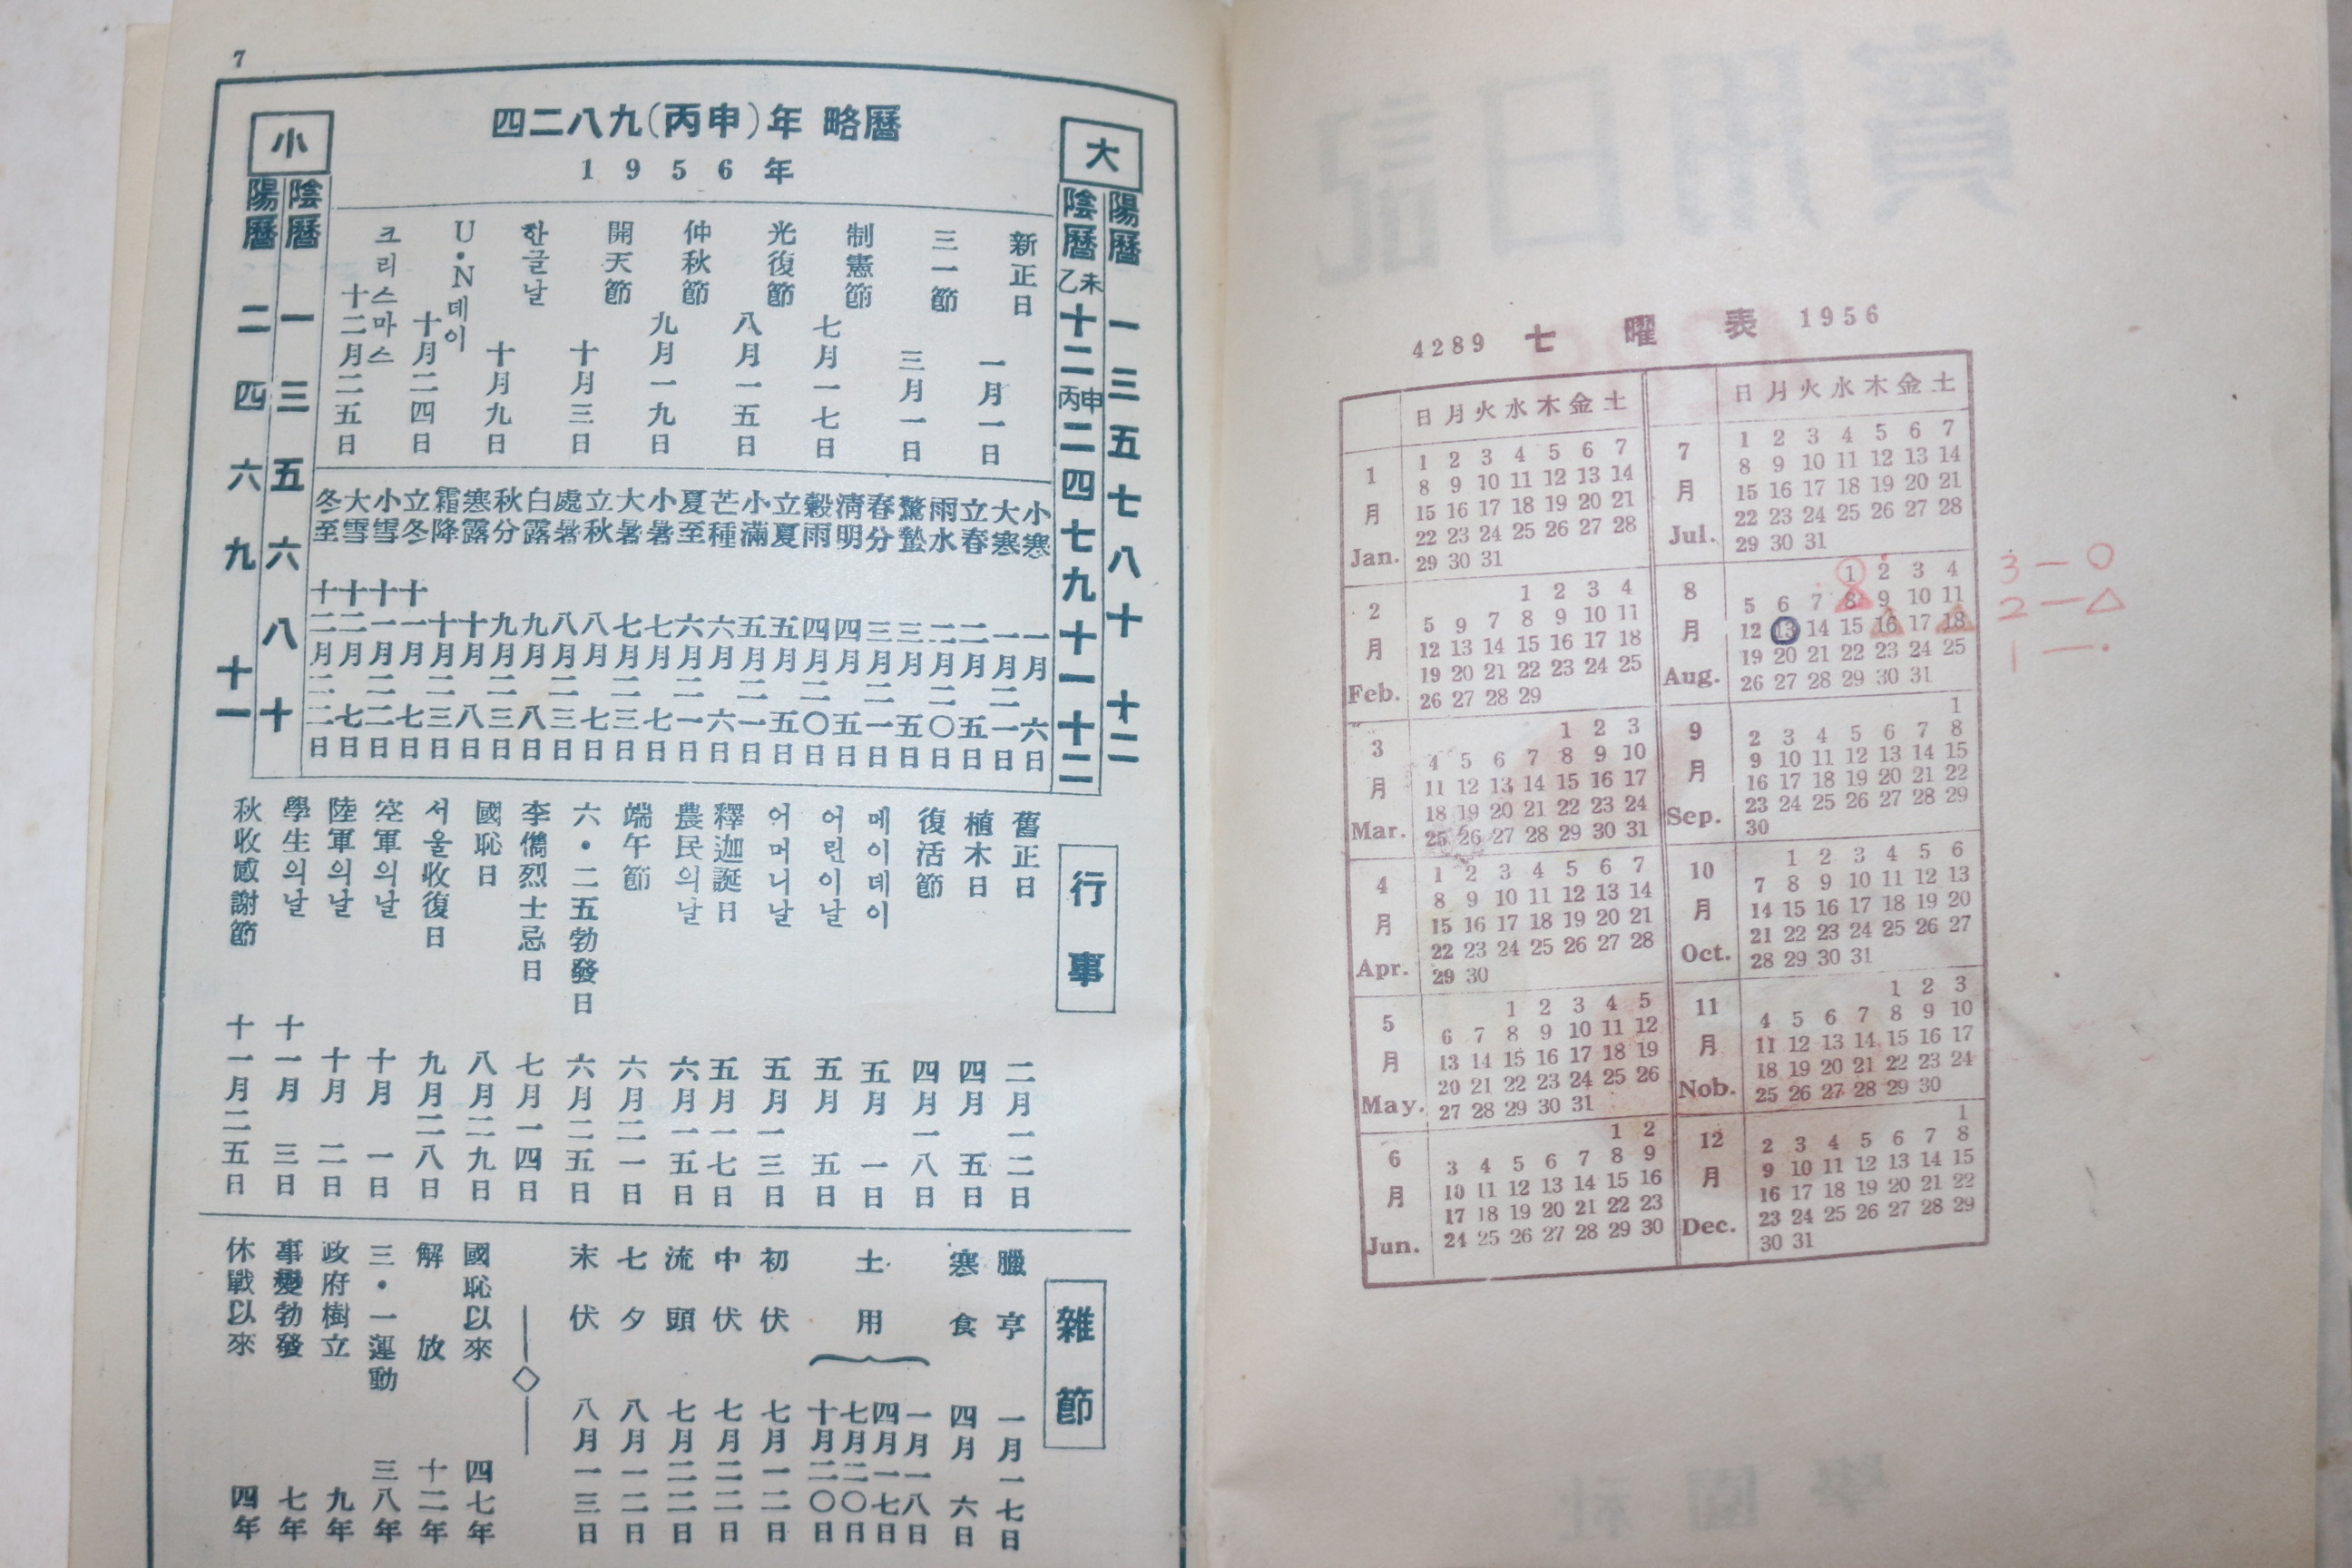 7
四二八九(丙申)年 略曆
1956年
大
陽曆 一 三 五 七 八 十 十二
陰曆 乙未 十二 丙申 二 四 七 九 十一 十二
新正日 一月一日
三一節 三月一日
制憲節 七月一七日
光復節 八月一五日
仲秋節 九月一九日
開天節 十月三日
한글날 十月九日
U·N데이 十月二四日
크리스마스 十二月二五日
小寒 一月六日
大寒 一月二一日
立春 二月五日
雨水 二月二〇日
驚蟄 三月五日
春分 三月二一日
淸明 四月五日
穀雨 四月二〇日
立夏 五月五日
小滿 五月二一日
芒種 六月六日
夏至 六月二一日
小暑 七月七日
大暑 七月二三日
立秋 八月七日
處暑 八月二三日
白露 九月八日
秋分 九月二三日
寒露 十月八日
霜降 十月二三日
立冬 十一月七日
小雪 十一月二二日
大雪 十二月七日
冬至 十二月二二日
小
陰曆 一 三 五 六 八 十
陽曆 二 四 六 九 十一
行事
舊正日 二月一二日
植木日 四月五日
復活節 四月一八日
메이데이 五月一日
어린이날 五月五日
어머니날 五月一三日
釋迦誕日 五月一七日
農民의날 六月一五日
端午節 六月二一日
六·二五勃發日 六月二五日
李儁烈士忌日 七月一四日
國恥日 八月二九日
서울收復日 九月二八日
空軍의날 十月一日
陸軍의날 十月二日
學生의날 十一月三日
秋收感謝節 十一月二五日
雜節
臘亨 一月一七日
寒食 四月六日
土用 一月一八日 四月一七日 七月二〇日 十月二〇日
初伏 七月一二日
中伏 七月二二日
流頭 七月二二日
七夕 八月一二日
末伏 八月一三日
國恥以來 四七年
解放 十二年
三·一運動 三八年
政府樹立 九年
事變勃發 七年
休戰以來 四年
4289 七曜表 1956
日 月 火 水 木 金 土
1月 Jan.
1 2 3 4 5 6 7
8 9 10 11 12 13 14
15 16 17 18 19 20 21
22 23 24 25 26 27 28
29 30 31
2月 Feb.
1 2 3 4
5 9 7 8 9 10 11
12 13 14 15 16 17 18
19 20 21 22 23 24 25
26 27 28 29
3月 Mar.
1 2 3
4 5 6 7 8 9 10
11 12 13 14 15 16 17
18 19 20 21 22 23 24
25 26 27 28 29 30 31
4月 Apr.
1 2 3 4 5 6 7
8 9 10 11 12 13 14
15 16 17 18 19 20 21
22 23 24 25 26 27 28
29 30
5月 May.
1 2 3 4 5
6 7 8 9 10 11 12
13 14 15 16 17 18 19
20 21 22 23 24 25 26
27 28 29 30 31
6月 Jun.
1 2
3 4 5 6 7 8 9
10 11 12 13 14 15 16
17 18 19 20 21 22 23
24 25 26 27 28 29 30
日 月 火 水 木 金 土
7月 Jul.
1 2 3 4 5 6 7
8 9 10 11 12 13 14
15 16 17 18 19 20 21
22 23 24 25 26 27 28
29 30 31
8月 Aug.
1 2 3 4
5 6 7 8 9 10 11
12 13 14 15 16 17 18
19 20 21 22 23 24 25
26 27 28 29 30 31
9月 Sep.
1
2 3 4 5 6 7 8
9 10 11 12 13 14 15
16 17 18 19 20 21 22
23 24 25 26 27 28 29
30
10月 Oct.
1 2 3 4 5 6
7 8 9 10 11 12 13
14 15 16 17 18 19 20
21 22 23 24 25 26 27
28 29 30 31
11月 Nob.
1 2 3
4 5 6 7 8 9 10
11 12 13 14 15 16 17
18 19 20 21 22 23 24
25 26 27 28 29 30
12月 Dec.
1
2 3 4 5 6 7 8
9 10 11 12 13 14 15
16 17 18 19 20 21 22
23 24 25 26 27 28 29
30 31
3 — ○
2 — △
1 — ·